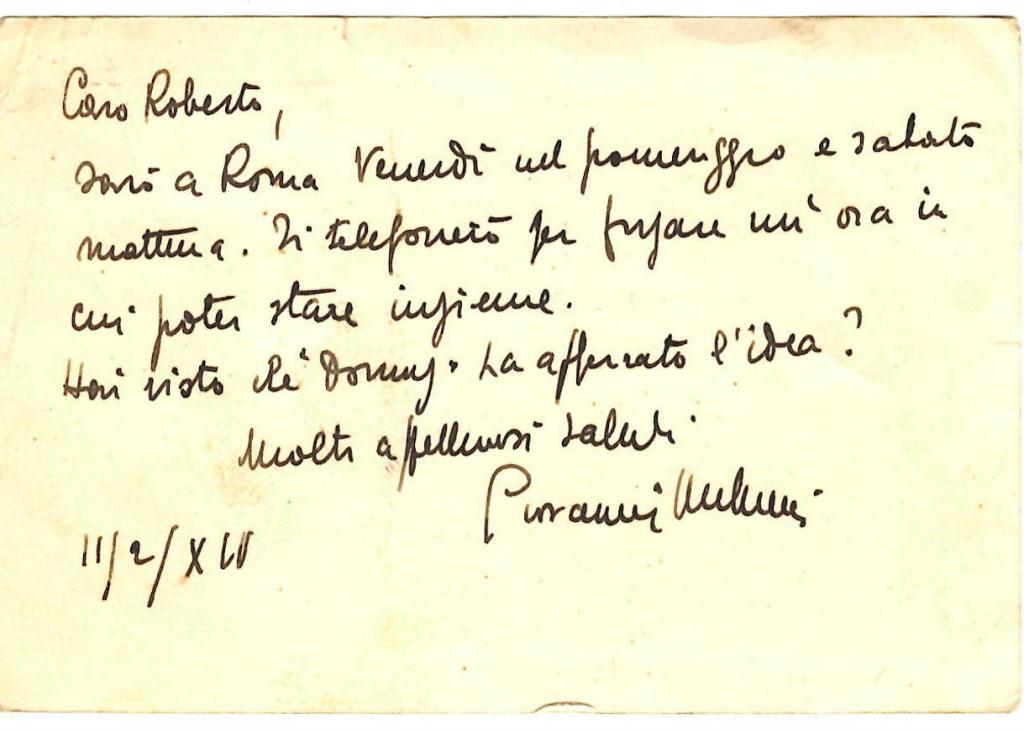 Caro Roberto,
sarò a Roma Venerdì nel pomeriggio e sabato
mattina. Ti telefonerò per fissare un'ora in
cui poter stare insieme.
Hai visto che "Domus" ha afferrato l'idea?
Molti affettuosi saluti.
Giovanni
11/2/XIV